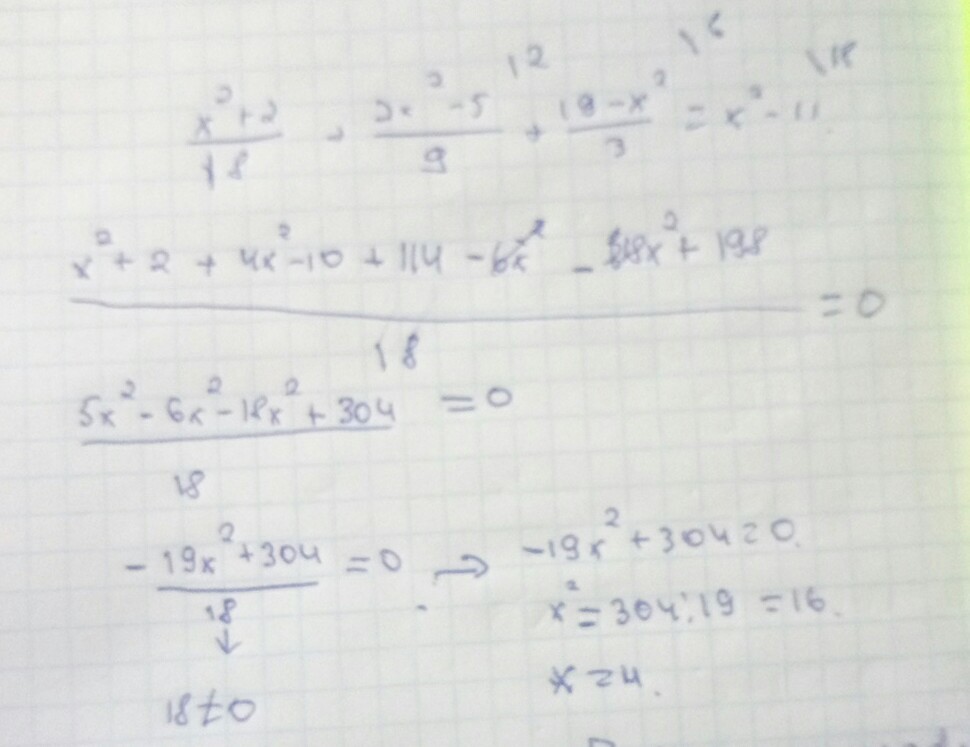 \frac{x^2+2}{18} + \frac{2x^2-5}{9} \backslash^2 + \frac{19-x^2}{3} \backslash^6 = x^2-11 \backslash^{18}
\frac{x^2+2+4x^2-10+114-6x^2-18x^2+198}{18} = 0
\frac{5x^2-6x^2-18x^2+304}{18} = 0
-\frac{19x^2+304}{18} = 0 → -19x^2+304=0.
↓ x^2=304:19=16.
18≠0 x=4.